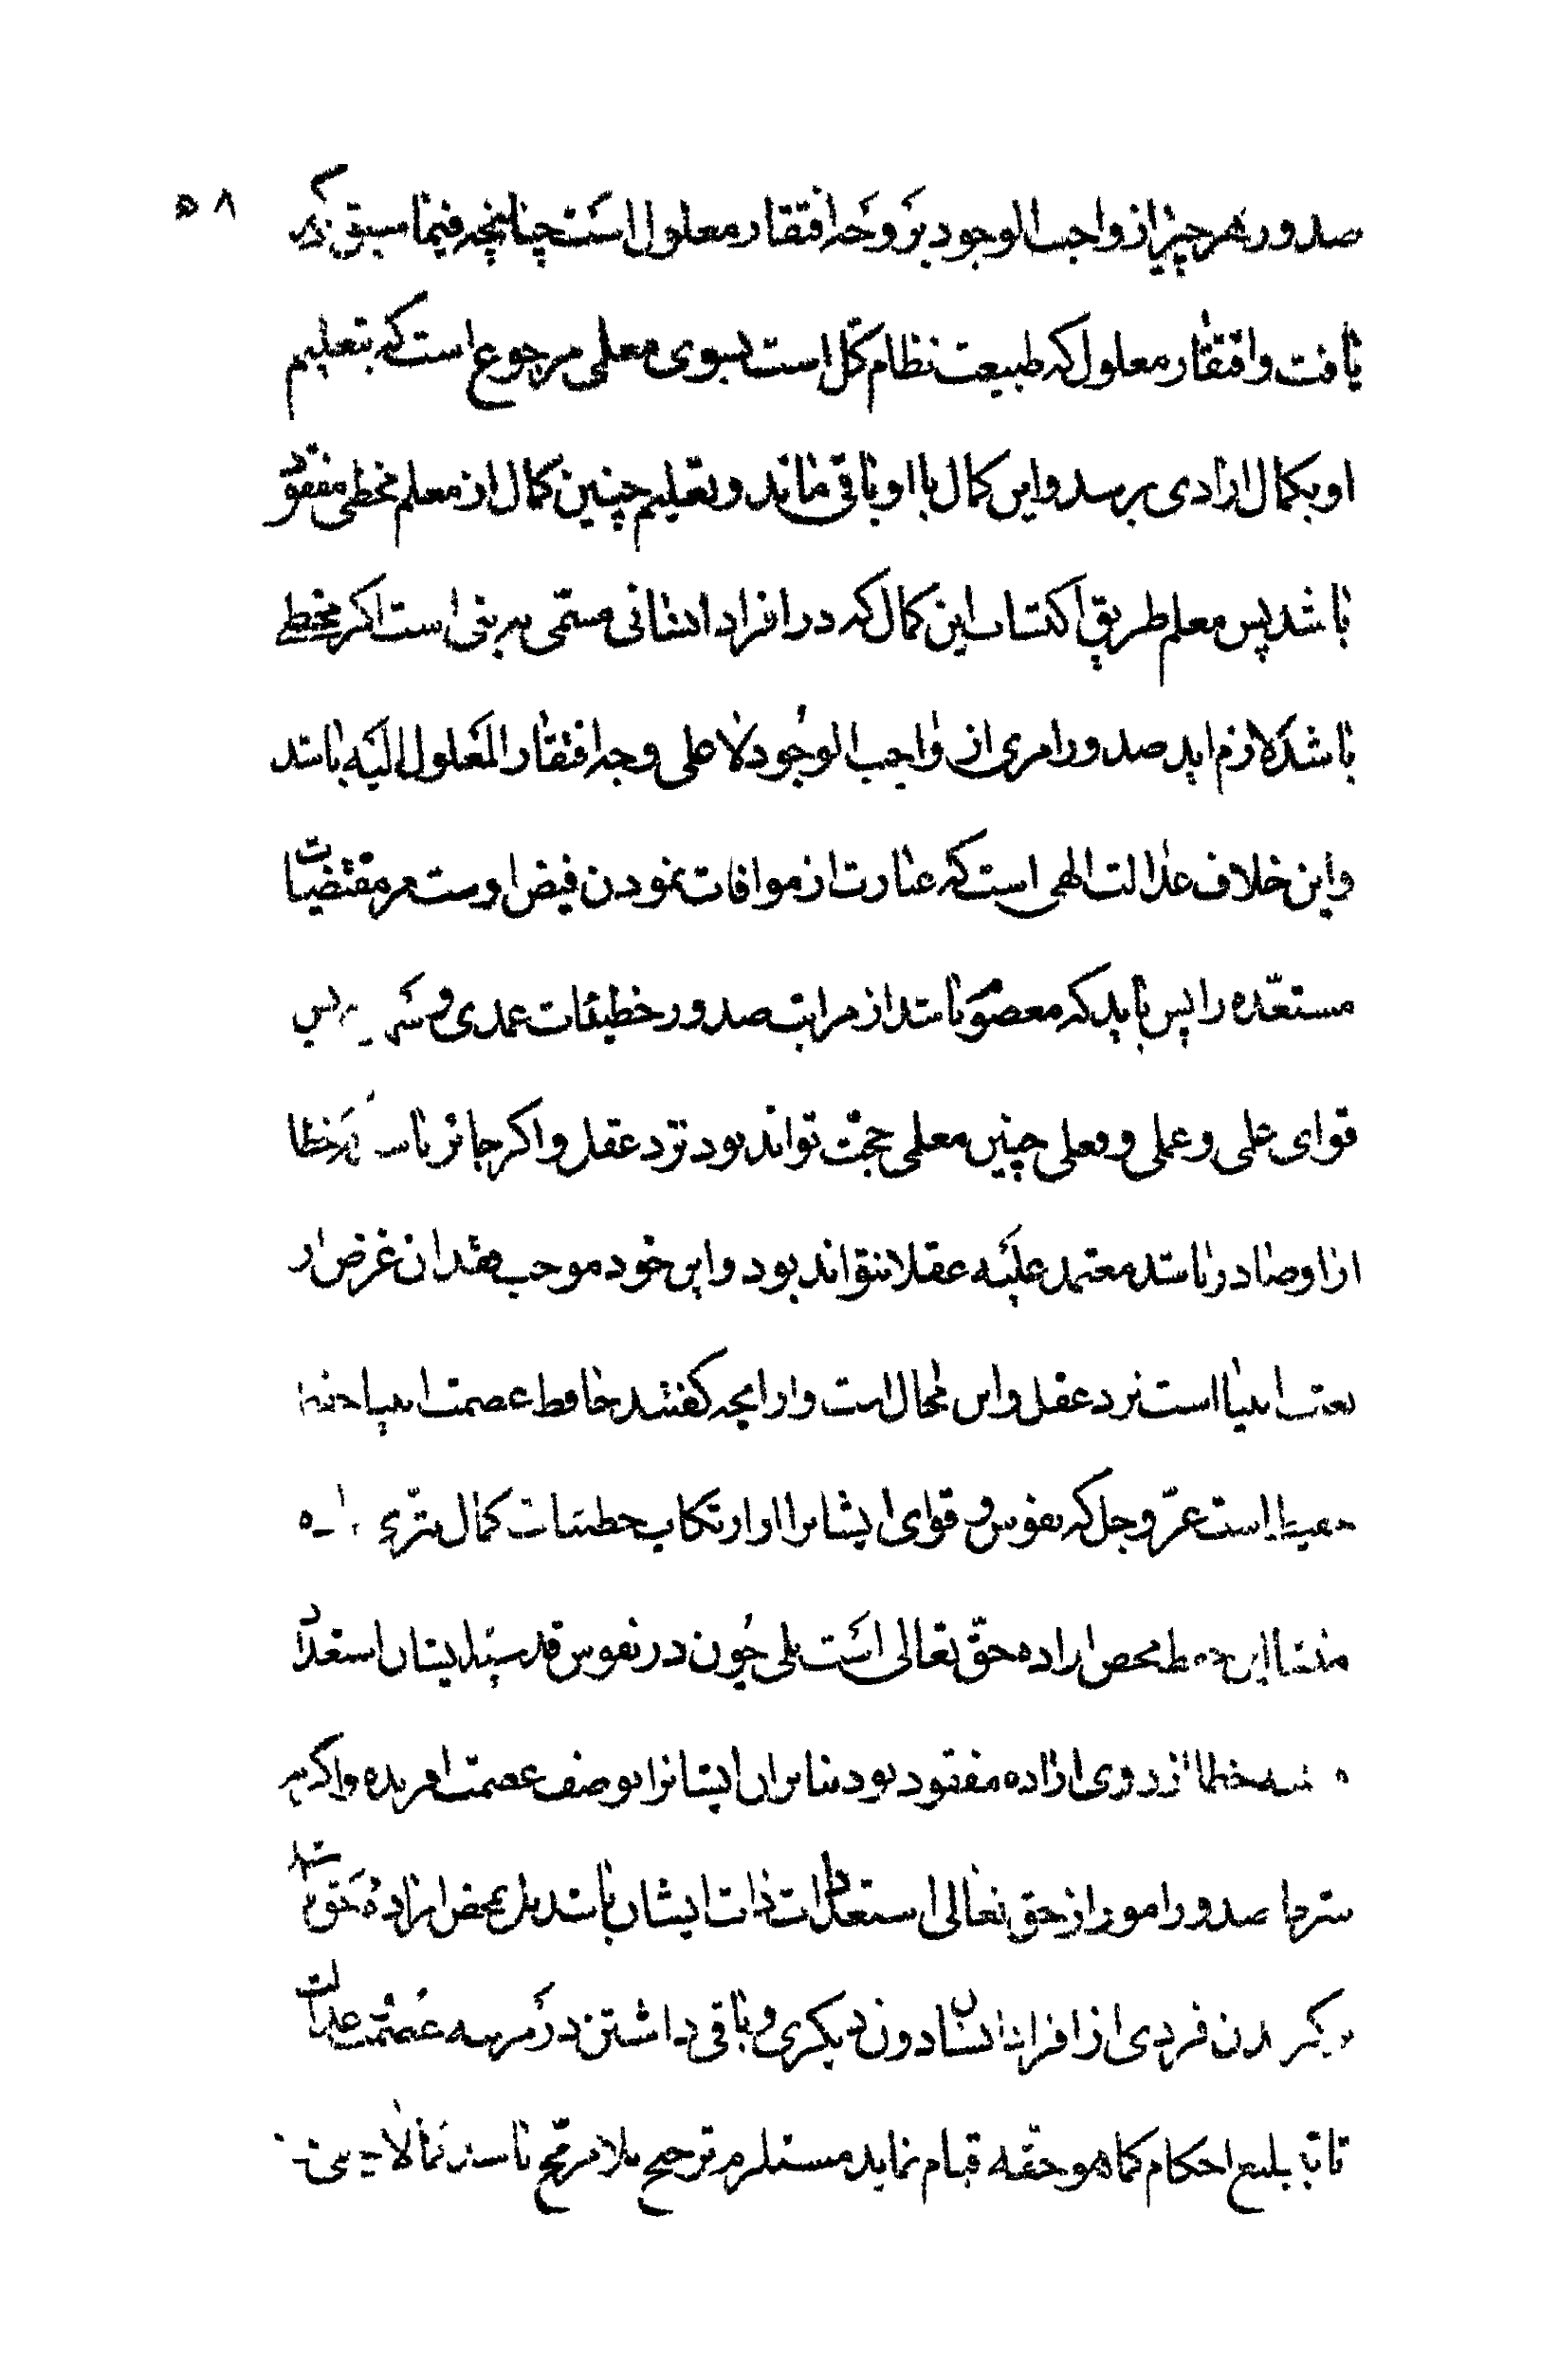 ۵۸
صدور هر چیز از واجب الوجود بر وجه افتقار معلول است چنانچه فیما سبق ذکر
یافت و افتقار معلول که طبیعت نظام کل است بسوی معلمی مرجوع است که بتعلیم
او بکمال ارادی برسد و این کمال با او باقی ماند و تعلیم چنین کمال از معلم مخطی مفقود
باشد پس معلم طریق اکتساب این کمال که در افراد انسانی مسمی به نبی است اکر مخطی
باشد لازم اید صدور امری از واجب الوجود لا علی وجه افتقار المعلول الیه باشد
و این خلاف عدالت الهی است که عبارت از موافات نمودن فیض اوست مر مقتضیات
مستعده را پس باید که معصوم باشد از مراتب صدور خطیئات عمدی و پس
قوای علمی و عملی و فعلی چنین معلمی حجت تواند بود نزد عقل و اکر جائز خطا
از او صادر باشد معتمد علیه عقلا نتواند بود و این خود موجب فقدان غرض از
بعثت انبیا است نزد عقل و این محال است و ازانچه کفتند حافظ عصمت انبیا
است عز و جل که نفوس و قوای ایشانرا از ارتکاب خطیئات کمال
منشا این محض اراده حق تعالی است بلی چون در نفوس قدسیه ایشان استعداد
خطا از روی اراده مفقود بود بنابران ایشانرا بوصف عصمت افریده و اکر نه
صدور امور از حق تعالی استعدادات ذات ایشان باشد بل بمحض اراده حق باشد
فردی از افراد انسان دون دیکری و باقی داشتن در مرتبه عصمت عدالت
تا بتبلیغ احکام کما هو حقه قیام نماید مستلزم ترجیح بلا مرجح